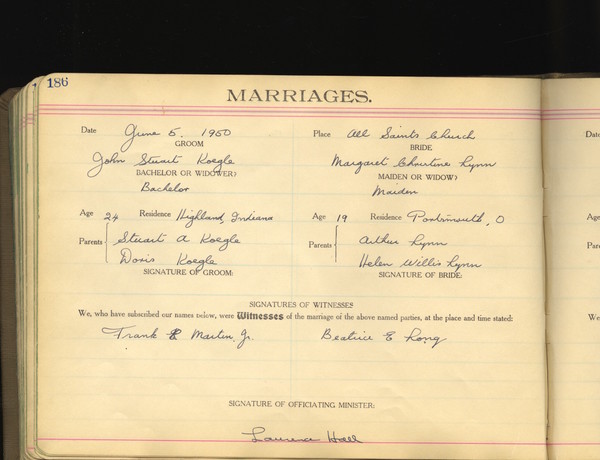 186
MARRIAGES.
Date June 5. 1950 Place All Saints Church
GROOM BRIDE
John Stuart Koegle Margaret Christine Lynn
BACHELOR OR WIDOWER) MAIDEN OR WIDOW)
Bachelor Maiden
Age 24 Residence Highland, Indiana Age 19 Residence Portsmouth, O
Parents Stuart A Koegle Parents Arthur Lynn
Doris Koegle Helen Willis Lynn
SIGNATURE OF GROOM: SIGNATURE OF BRIDE:
SIGNATURES OF WITNESSES
We, who have subscribed our names below, were Witnesses of the marriage of the above named parties, at the place and time stated:
Frank Martin, Jr. Beatrice E Long
SIGNATURE OF OFFICIATING MINISTER:
Laurence Hall
Date
Age
We